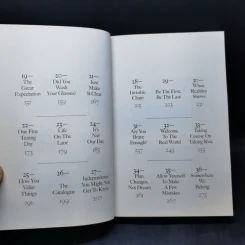 19—
The
Great
Expectation
151
20—
Did You
Wash
Your Glasses?
159
21—
Just
Make
It Clear
167
22—
One Fine
Tuning
Day
173
23—
Life
On The
Lane
179
24—
It's
Not
Our Day
185
25—
How You
Value
Things
191
26—
The
Catalogue
199
27—
Independence
You Might Not
Get To Know
28—
The
Invisible
Chain
29—
Be The First,
Be The Last
30—
When
Reality
Shines
31—
Are You
Brave
Enough?
237
32—
Welcome
To The
Real World
245
33—
Taking
Course On
Taking Risk
34—
Plan
Changes,
Not Dream
35—
Allow Yourself
To Make
A Few
Mistakes
36—
Somewhere
We
Belong